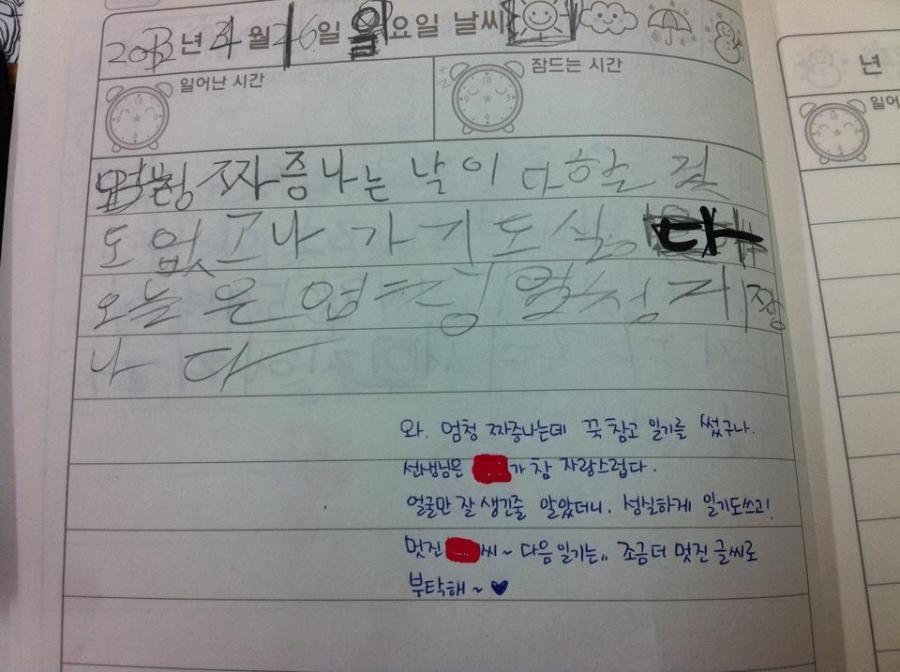 년 월 26일 일요일 날씨
일어난 시간 잠드는 시간
엄청 짜증나는 날이다 할 검
도 없고 나가기도 싫 다
오늘은 엄청 엄청 짜증
나다
와. 엄청 짜증나는데 꾹 참고 일기를 썼구나.
선생님은 가 참 자랑스럽다.
얼굴만 잘 생긴줄 알았더니. 성실하게 일기도쓰고!
멋진 씨~ 다음 일기는,, 조금 더 멋진 글씨로
부탁해~ ♥
년
일어